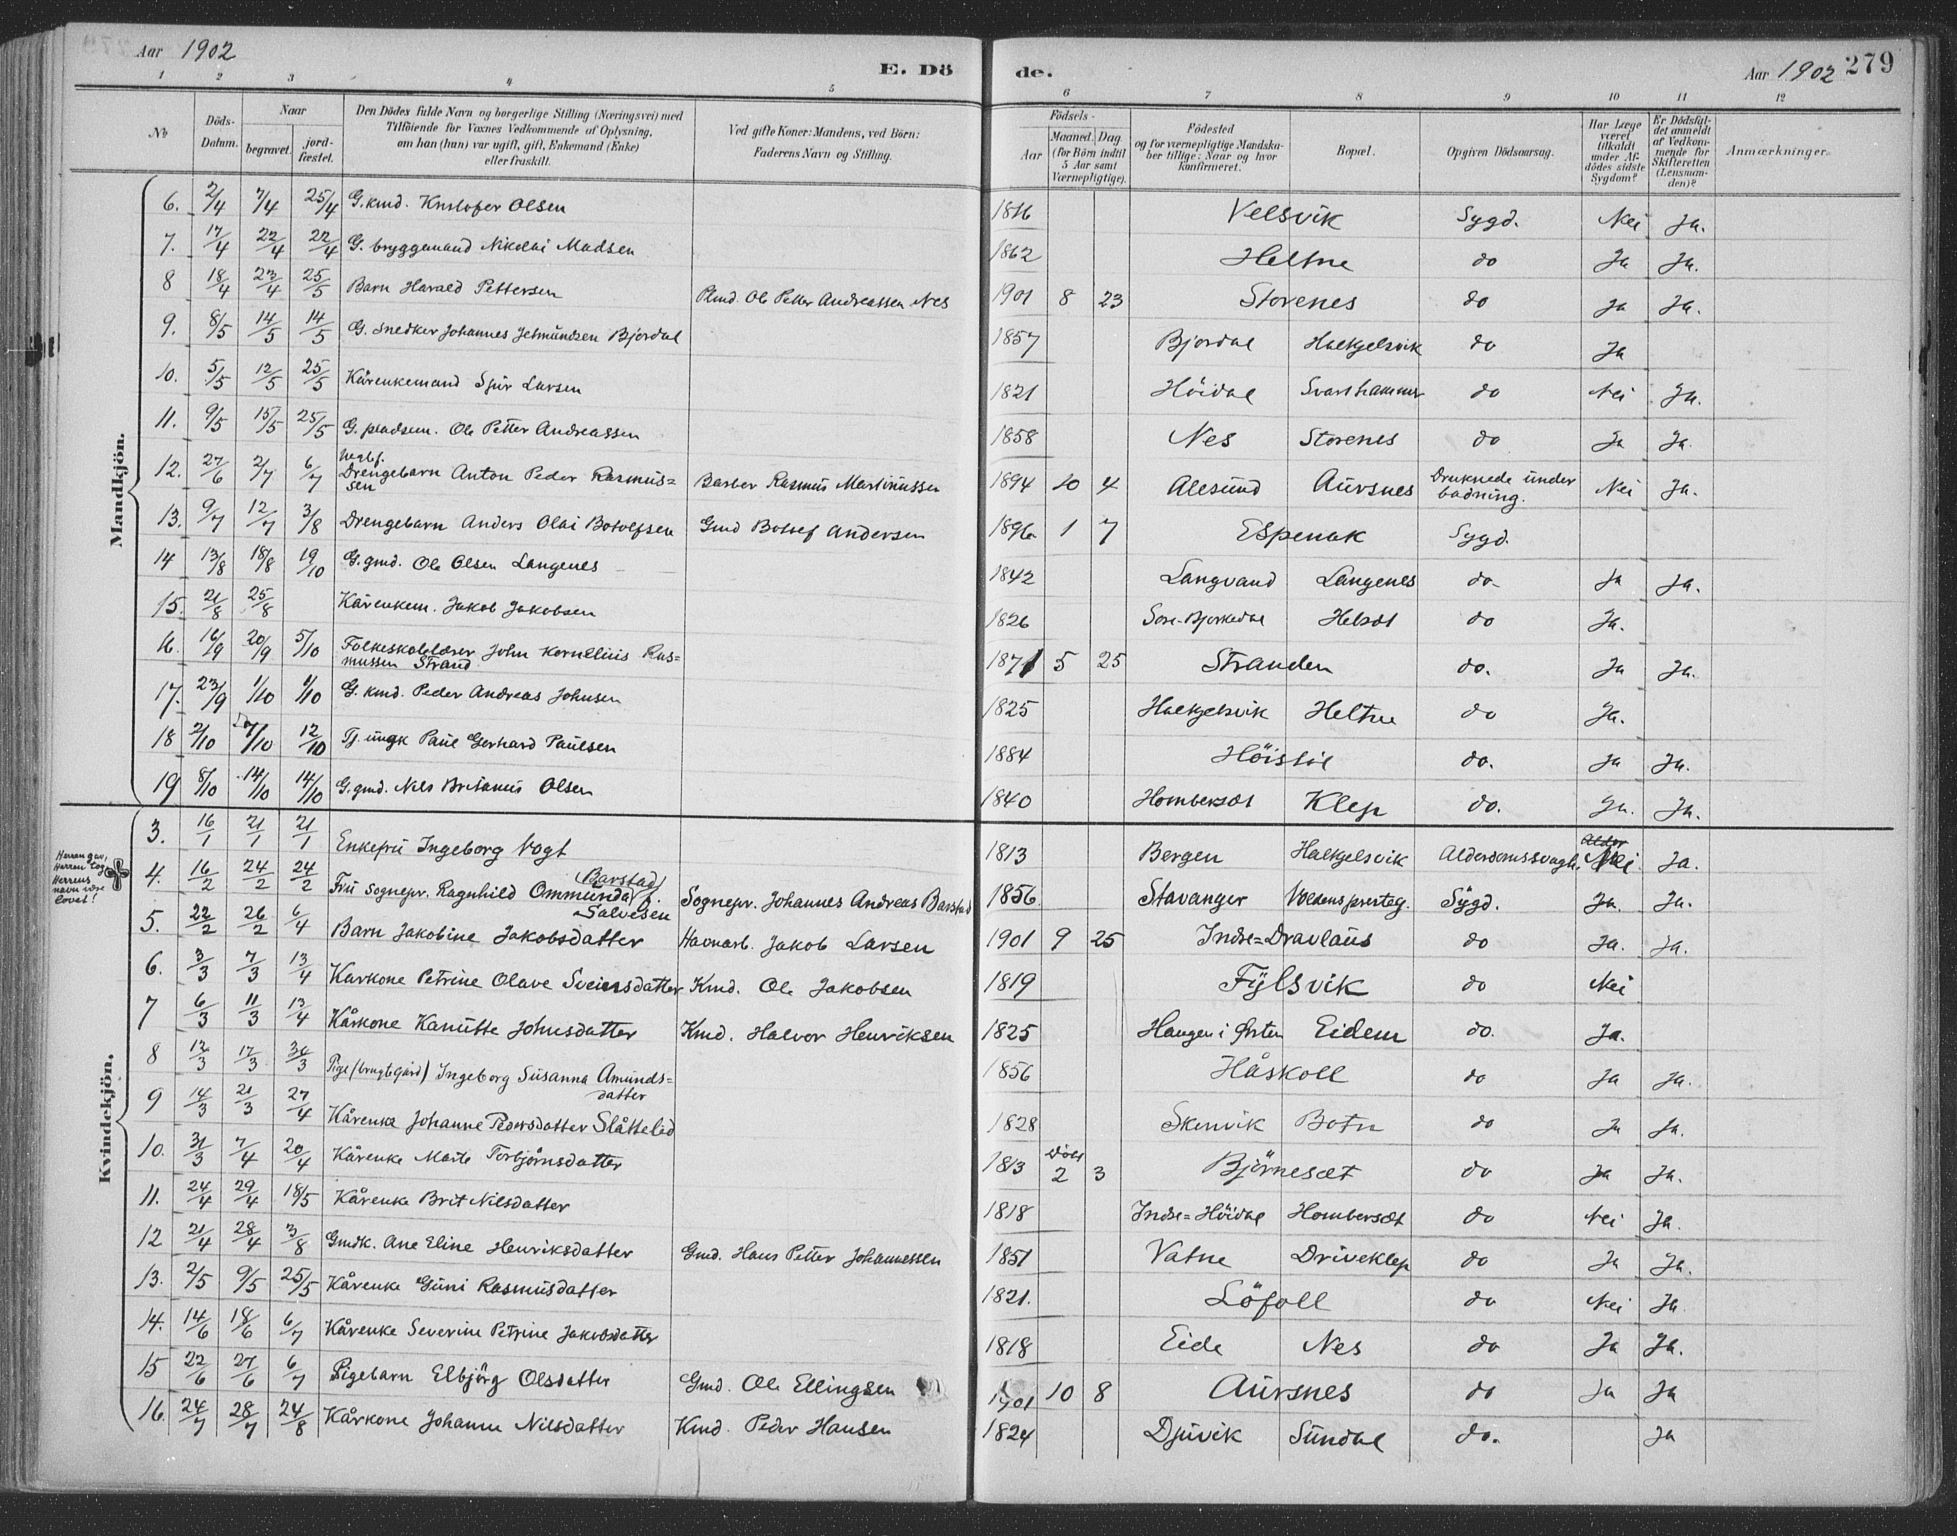 Aar 1902
E. Dö
de.
Aar 1902
279
1 2 3 4 5 6 7 8 9 10 11 12
No
Döds-Datum.
Naar
begravet.
jord-fæstet.
Den Dödes fulde Navn og borgerlige Stilling (Næringsvei) med
Tilföiende for Voxnes Vedkommende af Oplysning,
om han (hun) var ugift, gift, Enkemand (Enke)
eller fraskilt.
Ved gifte Koner: Mandens, ved Børn:
Faderens Navn og Stilling.
Födsels-
Aar
Maaned. Dag
(for Börn indtil
5 Aar samt
Værnepligtige).
Födested
og for værnepligtige Mandska-
ber tillige: Naar og hvor
konfirmeret.
Bopæl.
Opgiven Dödsaarsag.
Har Læge
været
tilkaldt
under Af-
dödes sidste
Sygdom?
Er Dödsfal-
det anmeldt
af Vedkom-
mende for
Skifteretten
(Lensman-
den)?
Anmærkninger.
Mandkjön.
6. 2/4 7/4 25/4 G.kmd. Kristofer Olsen 1816 Velsvik Sygd. Nei Ja.
7. 17/4 22/4 22/4 G. bryggemand Nikolai Madsen 1862 Heltne do Ja Ja.
8 18/4 23/4 25/5 Barn Harald Pettersen Plmd. Ole Petter Andreassen Nes 1901 8 23 Storenes do Ja Ja.
9. 8/5 14/5 14/5 G. Snedker Johannes Jetmundsen Bjordal 1857 Bjordal Halkjelsvik do Ja
10. 5/5 12/5 25/5 Kårenkemand Sjur Larsen 1821 Höidal Svarthammer do Nei Ja.
11. 9/5 15/5 25/5 G. pladsem. Ole Petter Andreassen 1858 Nes Storenes do Ja Ja.
12. 27/6 2/7 6/7 Drengebarn Anton Peder Rasmus=
sen Barber Rasmus Martinussen 1894 10 4 Alesund Aursnes Druknede under
badning. Nei Ja.
13. 9/7 12/7 3/8 Drengebarn Anders Olai Botolfsen Gmd Botolf Andersen 1896 1 7 Espenak Sygd.
14 13/8 18/8 19/10 G.gmd. Ole Olsen Langenes 1842 Langvand Langenes do Ja Ja.
15. 21/8 25/8 Kårenkem. Jakob Jakobsen 1826 Søre-Bjørkedal Helset do Ja.
16. 16/9 20/9 5/10 Folkeskolelærer John Kornelius Ras=
mussen Strand 1871 5 25 Stranden do. Ja Ja.
17. 23/9 1/10 1/10 G. kmd. Peder Andreas Johnsen 1825 Halkjelsvik Heltne do Ja.
18 2/10 7/10 12/10 Tj. ungk Paul Gerhard Paulsen 1884 Höistöl do. Ja Ja.
19 8/10 14/10 14/10 G.gmd. Nils Britanus Olsen 1840 Homberset Klep do. Ja. Ja.
Kvindekjön.
3. 16/1 21/1 21/1 Enkefru Ingeborg Vogt 1813 Bergen Halkjelsvik Alderdomssvagh. Nei. Ja.
Herren gav,
Herren tog
Herrens
navn være
lovet!
4. 16/2 24/2 24/2 Fru Sognepr. Ragnhild Ommunda Barstad f.
Salvesen Sognepr. Johannes Andreas Barstad 1856 Stavanger Voldens presteg. Sygd. Ja. Ja.
5. 22/2 26/2 6/4 Barn Jakobine Jakobsdatter Havnarb. Jakob Larsen 1901 9 25 Indre=Dravlaus do Ja. Ja.
6. 3/3 7/3 13/4 Karkone Petrine Olave Sveinsdatter Kmd. Ole Jakobsen 1819 Fylsvik do Nei
7 6/3 11/3 13/4 Kårkone Kanutte Johnsdatter Kmd. Halvor Henriksen 1825 Haugen i Ørsten Eidem do. Ja.
8 12/3 17/3 31/3 Pige (brugtgård) Ingeborg Susanna Amunds=
datter 1856 Håskoll do Ja Ja.
9 14/3 21/3 27/4 Kårenke Johanne Pedersdatter Slåttelid 1828 Skinvik Botn do Ja Ja.
10. 31/3 7/4 20/4 Kårenke Marte Torbjørnsdatter 1813 2 3 Björneset do Ja Ja.
11. 24/4 29/4 18/5 Kårenke Brit Nilsdatter 1818 Indre=Höidal Homberset do Nei Ja.
12 21/4 28/4 3/8 Gmdk. Ane Eline Henriksdatter Gmd. Hans Petter Johannessen 1851 Vatne Driveklep do Ja Ja.
13. 2/5 9/5 25/5 Kårenke Guni Rasmusdatter 1821. Löfoll do Nei Ja.
14. 14/6 18/6 6/7 Kårenke Severine Petrine Jakobsdatter 1818 Eide Nes do Ja Ja.
15 22/6 27/6 6/7 Pigebarn Elbjörg Olsdatter Gmd. Ole Ellingsen 1901 10 8 Aursnes do Ja Ja
16. 24/7 28/7 24/8 Kårkone Johanne Nilsdatter Kmd. Peder Hansen 1824 Djuvik Sundal do. Ja